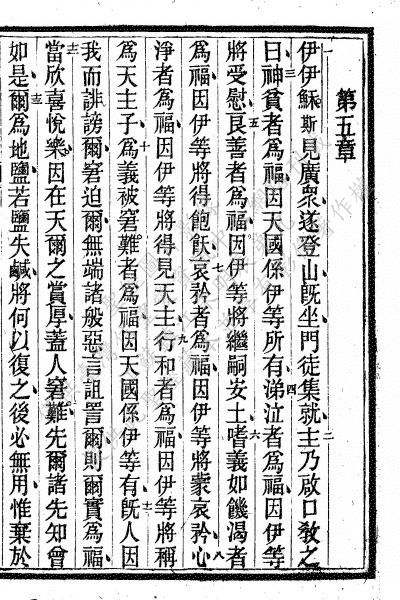 第五章
伊伊穌斯見廣衆遂登山旣坐門徒集就主乃啟口敎之
曰神貧者爲福因天國係伊等所有涕泣者爲福因伊等
將受慰良善者爲福因伊等將繼嗣安土嗜義如饑渴者
爲福因伊等將得飽飫哀矜者爲福因伊等將蒙哀矜心
淨者爲福因伊等將得見天主行和者爲福因伊等將稱
爲天主子爲義被窘難者爲福因天國係伊等有旣人因
我而誹謗爾窘迫爾無端諸般惡言詛詈爾則爾實爲福
當欣喜悅樂因在天爾之賞厚蓋人窘難先爾諸先知曾
如是爾爲地鹽若鹽失鹹將何以復之後必無用惟棄於